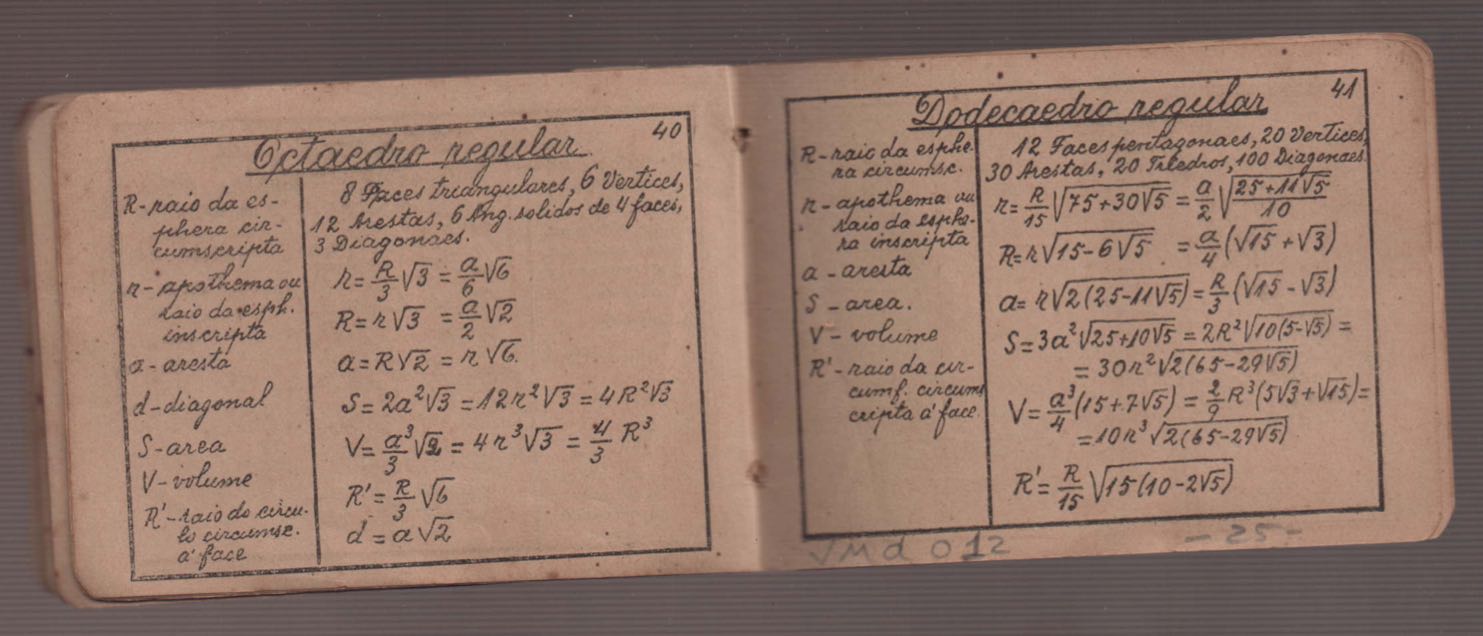 40
Octaedro regular
R-raio da es-
phera cir-
cumscripta
r-apothema ou
raio da esph.
inscripta
a-aresta
d-diagonal
S-area
V-volume
R'-raio do circu-
lo circumsc.
á face
8 Faces triangulares, 6 Vertices,
12 Arestas, 6 Ang. solidos de 4 faces,
3 Diagonaes.
r = R/3 √3 = a/6 √6
R = r√3 = a/2 √2
a = R√2 = r√6
S = 2a²√3 = 12r²√3 = 4R²√3
V = a³/3 √2 = 4r³√3 = 4/3 R³
R' = R/3 √6
d = a√2
41
Dodecaedro regular
R-raio da esphe-
ra circumsc.
r-apothema ou
raio da esphe-
ra inscripta
a-aresta
S-area.
V-volume
R'-raio da cir-
cumf. circums
cripta á face.
12 Faces pentagonaes, 20 Vertices,
30 Arestas, 20 Triedros, 100 Diagonaes.
r = R/15 √(75+30√5) = a/2 √((25+11√5)/10)
R = r√(15-6√5) = a/4 (√15+√3)
a = r√(2(25-11√5)) = R/3 (√15-√3)
S = 3a²√(25+10√5) = 2R²√(10(5-√5)) =
= 30r²√(2(65-29√5))
V = a³/4 (15+7√5) = 2/9 R³(5√3+√15) =
= 10r³√(2(65-29√5))
R' = R/15 √(15(10-2√5))
JMd 012
-25-